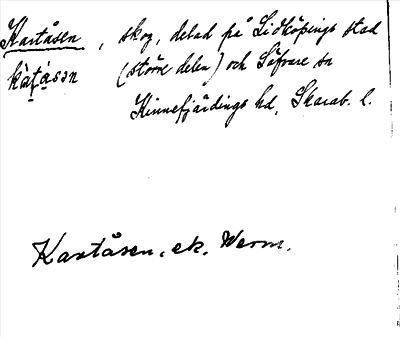 Kartåsen, skog, delad på Lidköpings stad
(större delen) och Säfvare sn
Kinnefjärdings hd, Skarab. l.
Kartåsen, ek. Werm.